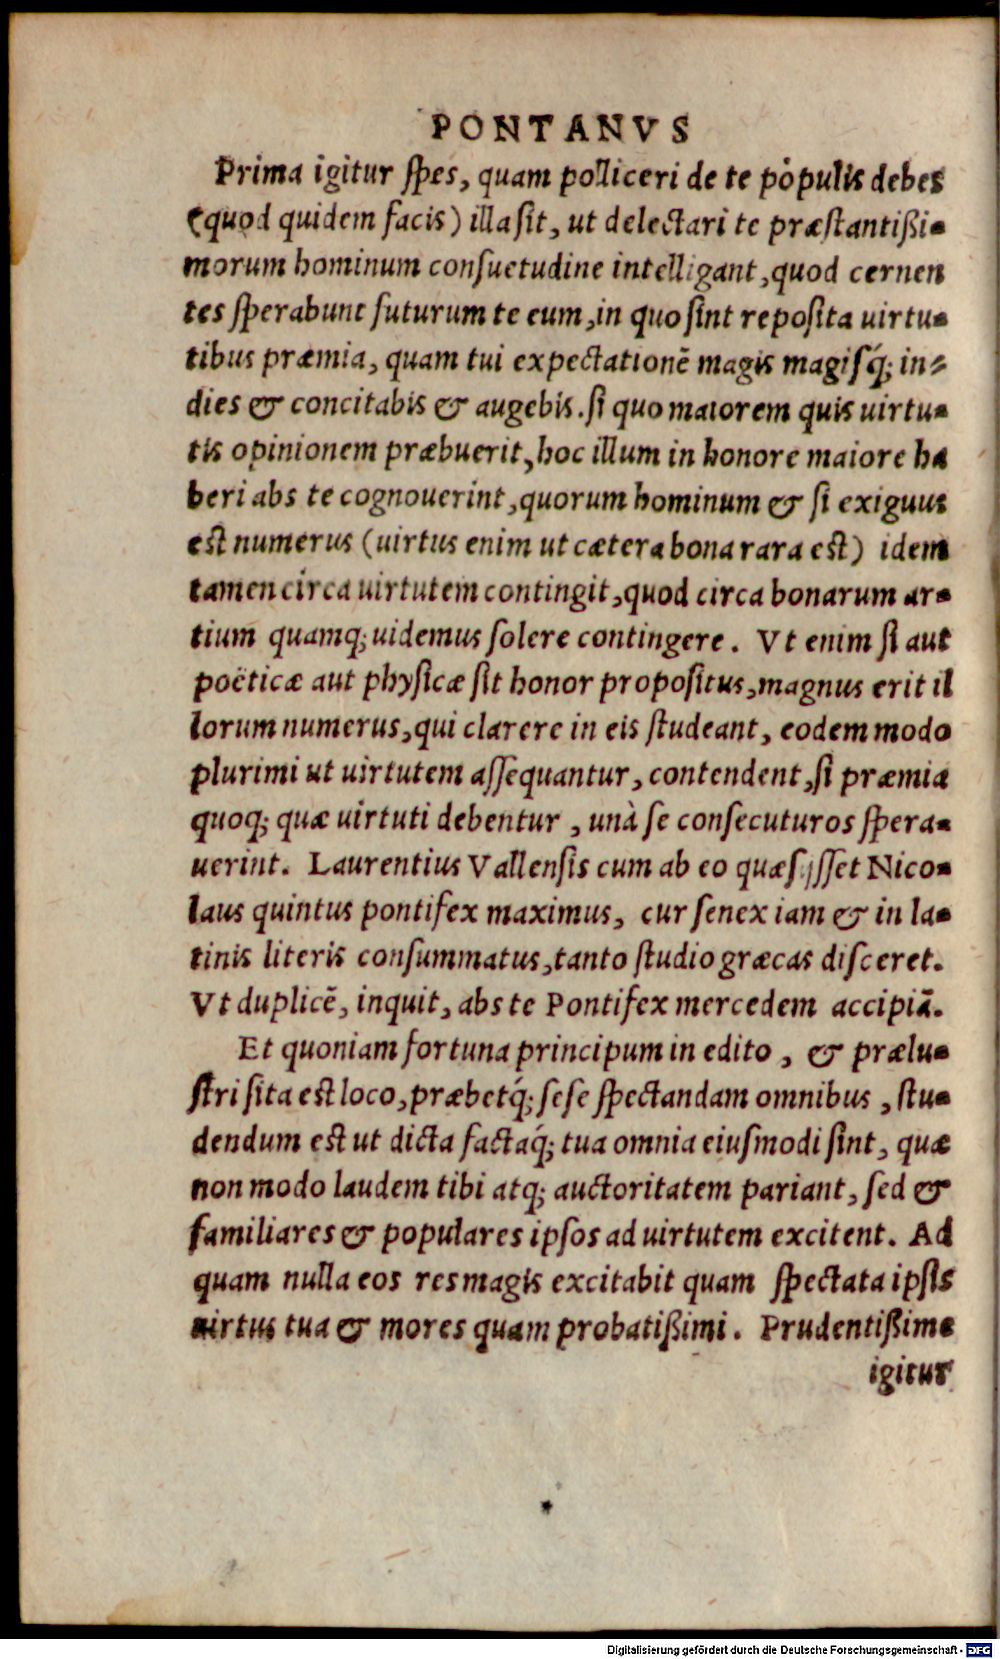 PONTANVS
Prima igitur ſpes, quam polliceri de te pòpulis debes
(quod quidem facis) illa ſit, ut delectari te præſtantißi-
morum hominum conſuetudine intelligant, quod cernen
tes ſperabunt futurum te eum, in quo ſint repoſita uirtu-
tibus præmia, quam tui expectationē magis magiſq́; in-
dies & concitabis & augebis. ſi quo maiorem quis uirtu-
tis opinionem præbuerit, hoc illum in honore maiore ha
beri abs te cognouerint, quorum hominum & ſi exiguus
eſt numerus (uirtus enim ut cætera bona rara eſt) idem
tamen circa uirtutem contingit, quod circa bonarum ar-
tium quamq; uidemus ſolere contingere. Vt enim ſi aut
poëticæ aut phyſicæ ſit honor propoſitus, magnus erit il
lorum numerus, qui clarere in eis ſtudeant, eodem modo
plurimi ut uirtutem aſſequantur, contendent, ſi præmia
quoq; quæ uirtuti debentur, unà ſe conſecuturos ſpera-
uerint. Laurentius Vallenſis cum ab eo quæſijſſet Nico-
laus quintus pontifex maximus, cur ſenex iam & in la-
tinis literis conſummatus, tanto ſtudio græcas diſceret.
Vt duplicē, inquit, abs te Pontifex mercedem accipiā.
Et quoniam fortuna principum in edito, & prælu-
ſtri ſita eſt loco, præbetq́; ſeſe ſpectandam omnibus, ſtu-
dendum eſt ut dicta factaq́; tua omnia eiuſmodi ſint, quæ
non modo laudem tibi atq; auctoritatem pariant, ſed &
familiares & populares ipſos ad uirtutem excitent. Ad
quam nulla eos res magis excitabit quam ſpectata ipſis
uirtus tua & mores quam probatißimi. Prudentißime
igitur
Digitalisierung gefördert durch die Deutsche Forschungsgemeinschaft - DFG